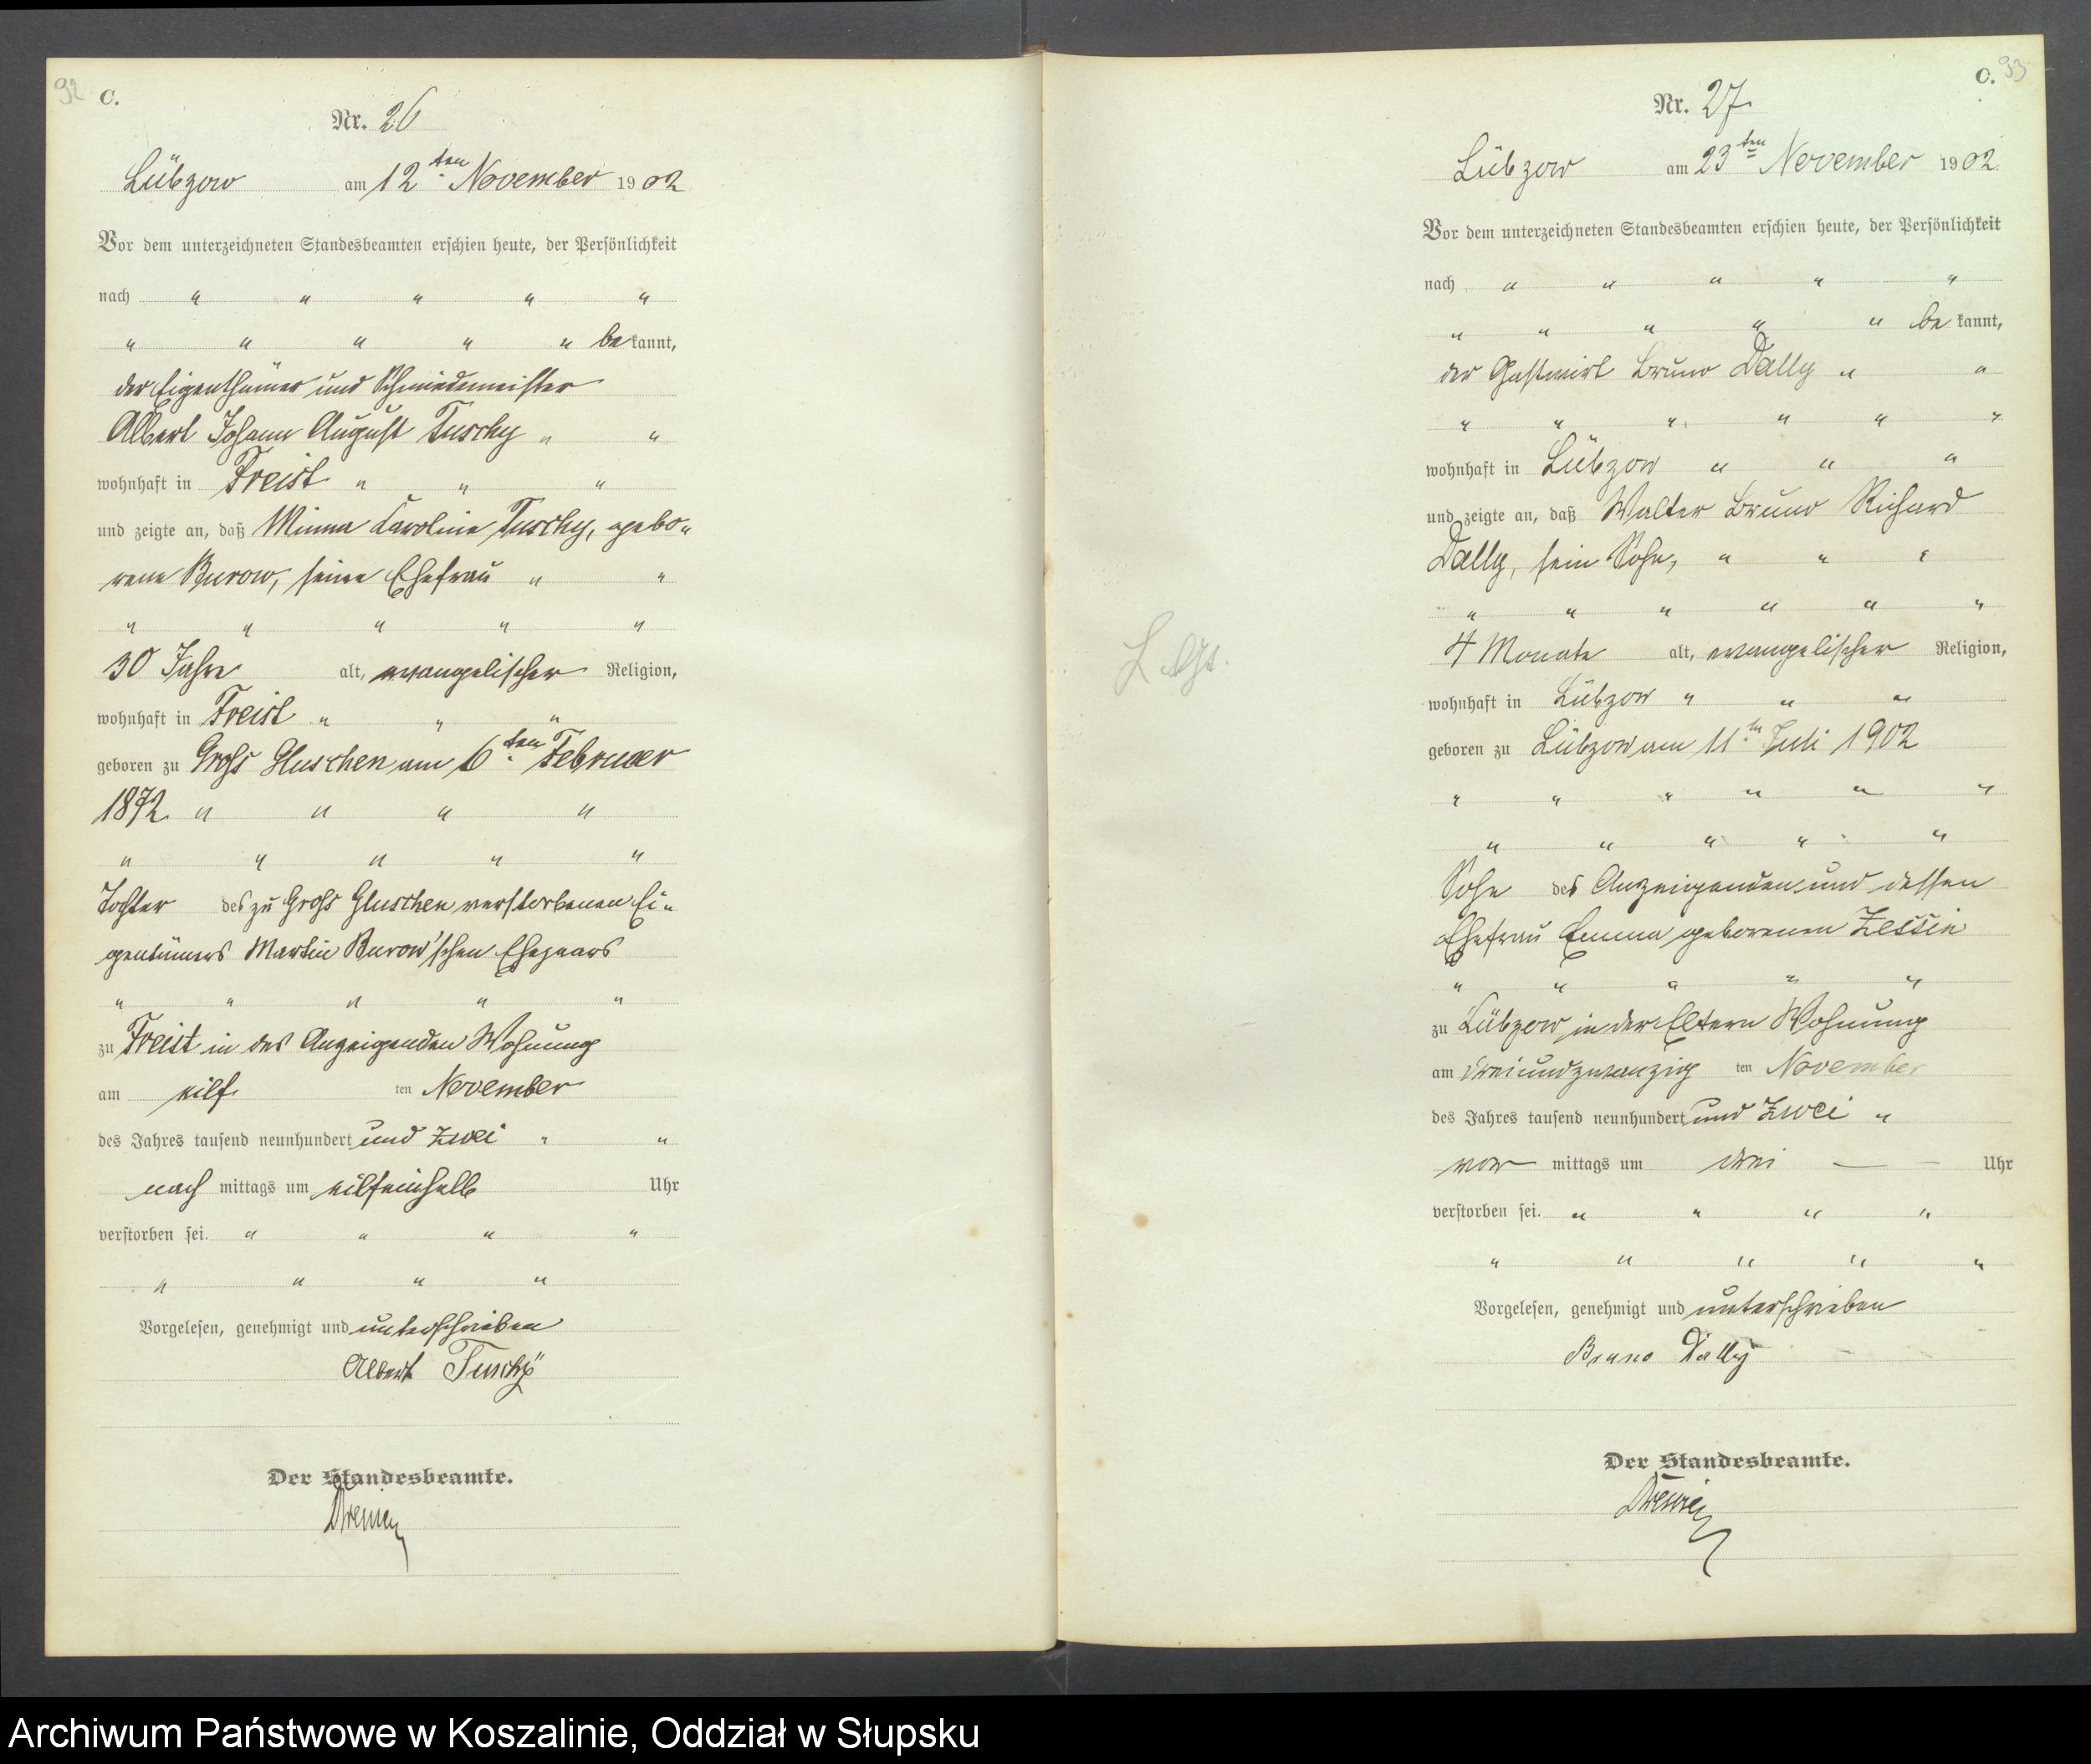 92 C.
Nr. 26
Lübzow am 12ten November 1902
Vor dem unterzeichneten Standesbeamten erschien heute, der Persönlichkeit
nach " " " " "
" " " " " be kannt,
der Eigenthümer und Schmiedemeister
Albert Johann August Tuschy " "
wohnhaft in Freist " " "
und zeigte an, daß Minna Caroline Tuschy, gebo"
rene Burow, seine Ehefrau " "
" " " " "
30 Jahre alt, evangelischer Religion,
wohnhaft in Freist " " "
geboren zu Groß Gluschen am 6ten Februar
1872 " " " "
" " " " "
Tochter des zu Groß Gluschen verstorbenen Ei"
gentümers Martin Burow'schen Ehepaars
" " " " "
zu Freist in des Anzeigenden Wohnung
am eilf ten November
des Jahres tausend neunhundert und zwei " "
nach mittags um eilfeinhalb Uhr
verstorben sei. " " " "
" " " "
Vorgelesen, genehmigt und unterschrieben
Albert Tuschÿ
Der Standesbeamte.
C. 93
Nr. 27
Lübzow am 23ten November 1902
Vor dem unterzeichneten Standesbeamten erschien heute, der Persönlichkeit
nach " " " " "
" " " " " be kannt,
der Gastwirt Bruno Dally " "
" " " " " "
wohnhaft in Lübzow " " "
und zeigte an, daß Walter Bruno Richard
Dally, sein Sohn, " " "
" " " " " "
4 Monate alt, evangelischer Religion,
wohnhaft in Lübzow " " "
geboren zu Lübzow am 11ten Juli 1902
" " " " " "
" " " " "
Sohn des Anzeigenden und dessen
Ehefrau Emma geborenen Zessin
" " " " "
zu Lübzow in der Eltern Wohnung
am dreiundzwanzig ten November
des Jahres tausend neunhundert und zwei "
vor mittags um drei — – Uhr
verstorben sei. " " " "
" " " " "
Vorgelesen, genehmigt und unterschrieben
Bruno Dally
Der Standesbeamte.
Archiwum Państwowe w Koszalinie, Oddział w Słupsku